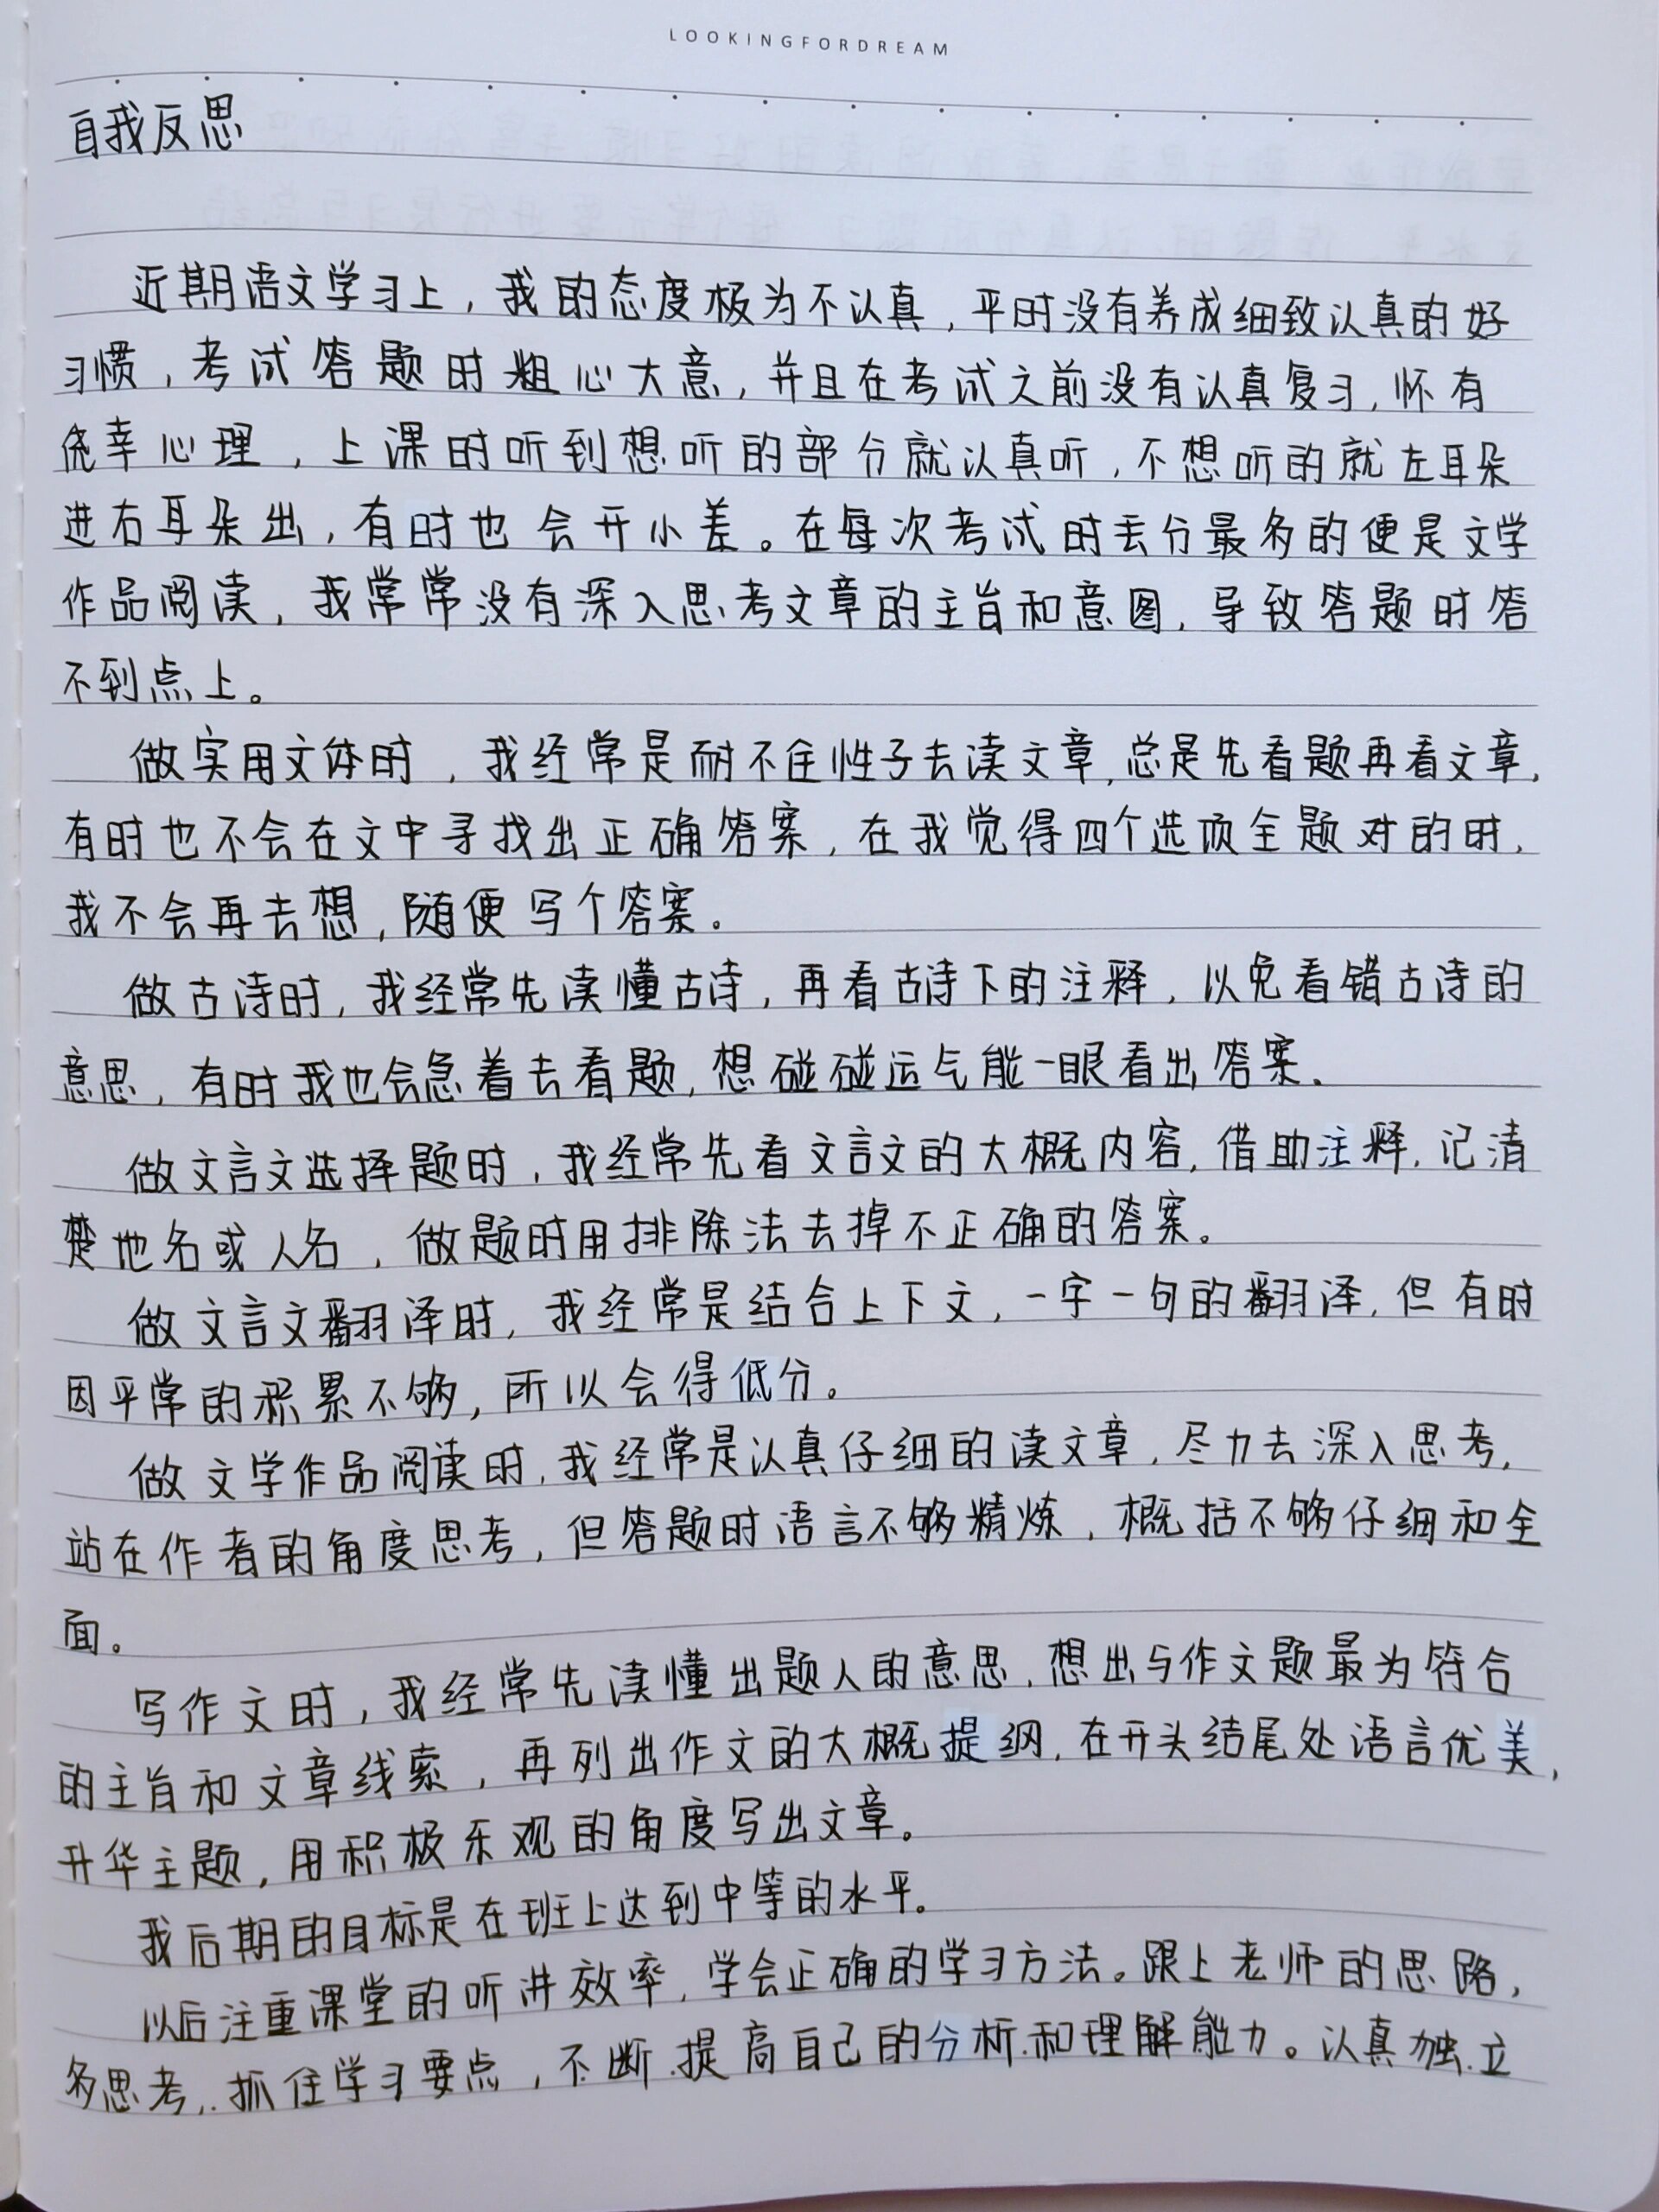 LOOKINGFORDREAM
自我反思
近期语文学习上，我的态度极为不认真，平时没有养成细致认真的好
习惯，考试答题时粗心大意，并且在考试之前没有认真复习，怀有
侥幸心理，上课时听到想听的部分就认真听，不想听的就左耳朵
进右耳朵出，有时也会开小差。在每次考试时丢分最多的便是文学
作品阅读，我常常没有深入思考文章的主旨和意图，导致答题时答
不到点上。
做实用文体时，我经常是耐不住性子去读文章，总是先看题再看文章，
有时也不会在文中寻找出正确答案，在我觉得四个选项全题对的时，
我不会再去想，随便写个答案。
做古诗时，我经常先读懂古诗，再看古诗下的注释，以免看错古诗的
意思，有时我也会急着去看题，想碰碰运气能一眼看出答案。
做文言文选择题时，我经常先看文言文的大概内容，借助注释，记清
楚地名或人名，做题时用排除法去掉不正确的答案。
做文言文翻译时，我经常是结合上下文，一字一句的翻译，但有时
因平常的积累不够，所以会得低分。
做文学作品阅读时，我经常是认真仔细的读文章，尽力去深入思考，
站在作者的角度思考，但答题时语言不够精炼，概括不够仔细和全
面。
写作文时，我经常先读懂出题人的意思，想出与作文题最为符合
的主旨和文章线索，再列出作文的大概提纲，在开头结尾处语言优美，
升华主题，用积极乐观的角度写出文章。
我后期的目标是在班上达到中等的水平。
以后注重课堂的听讲效率，学会正确的学习方法。跟上老师的思路，
多思考，抓住学习要点，不断提高自己的分析和理解能力。认真独立